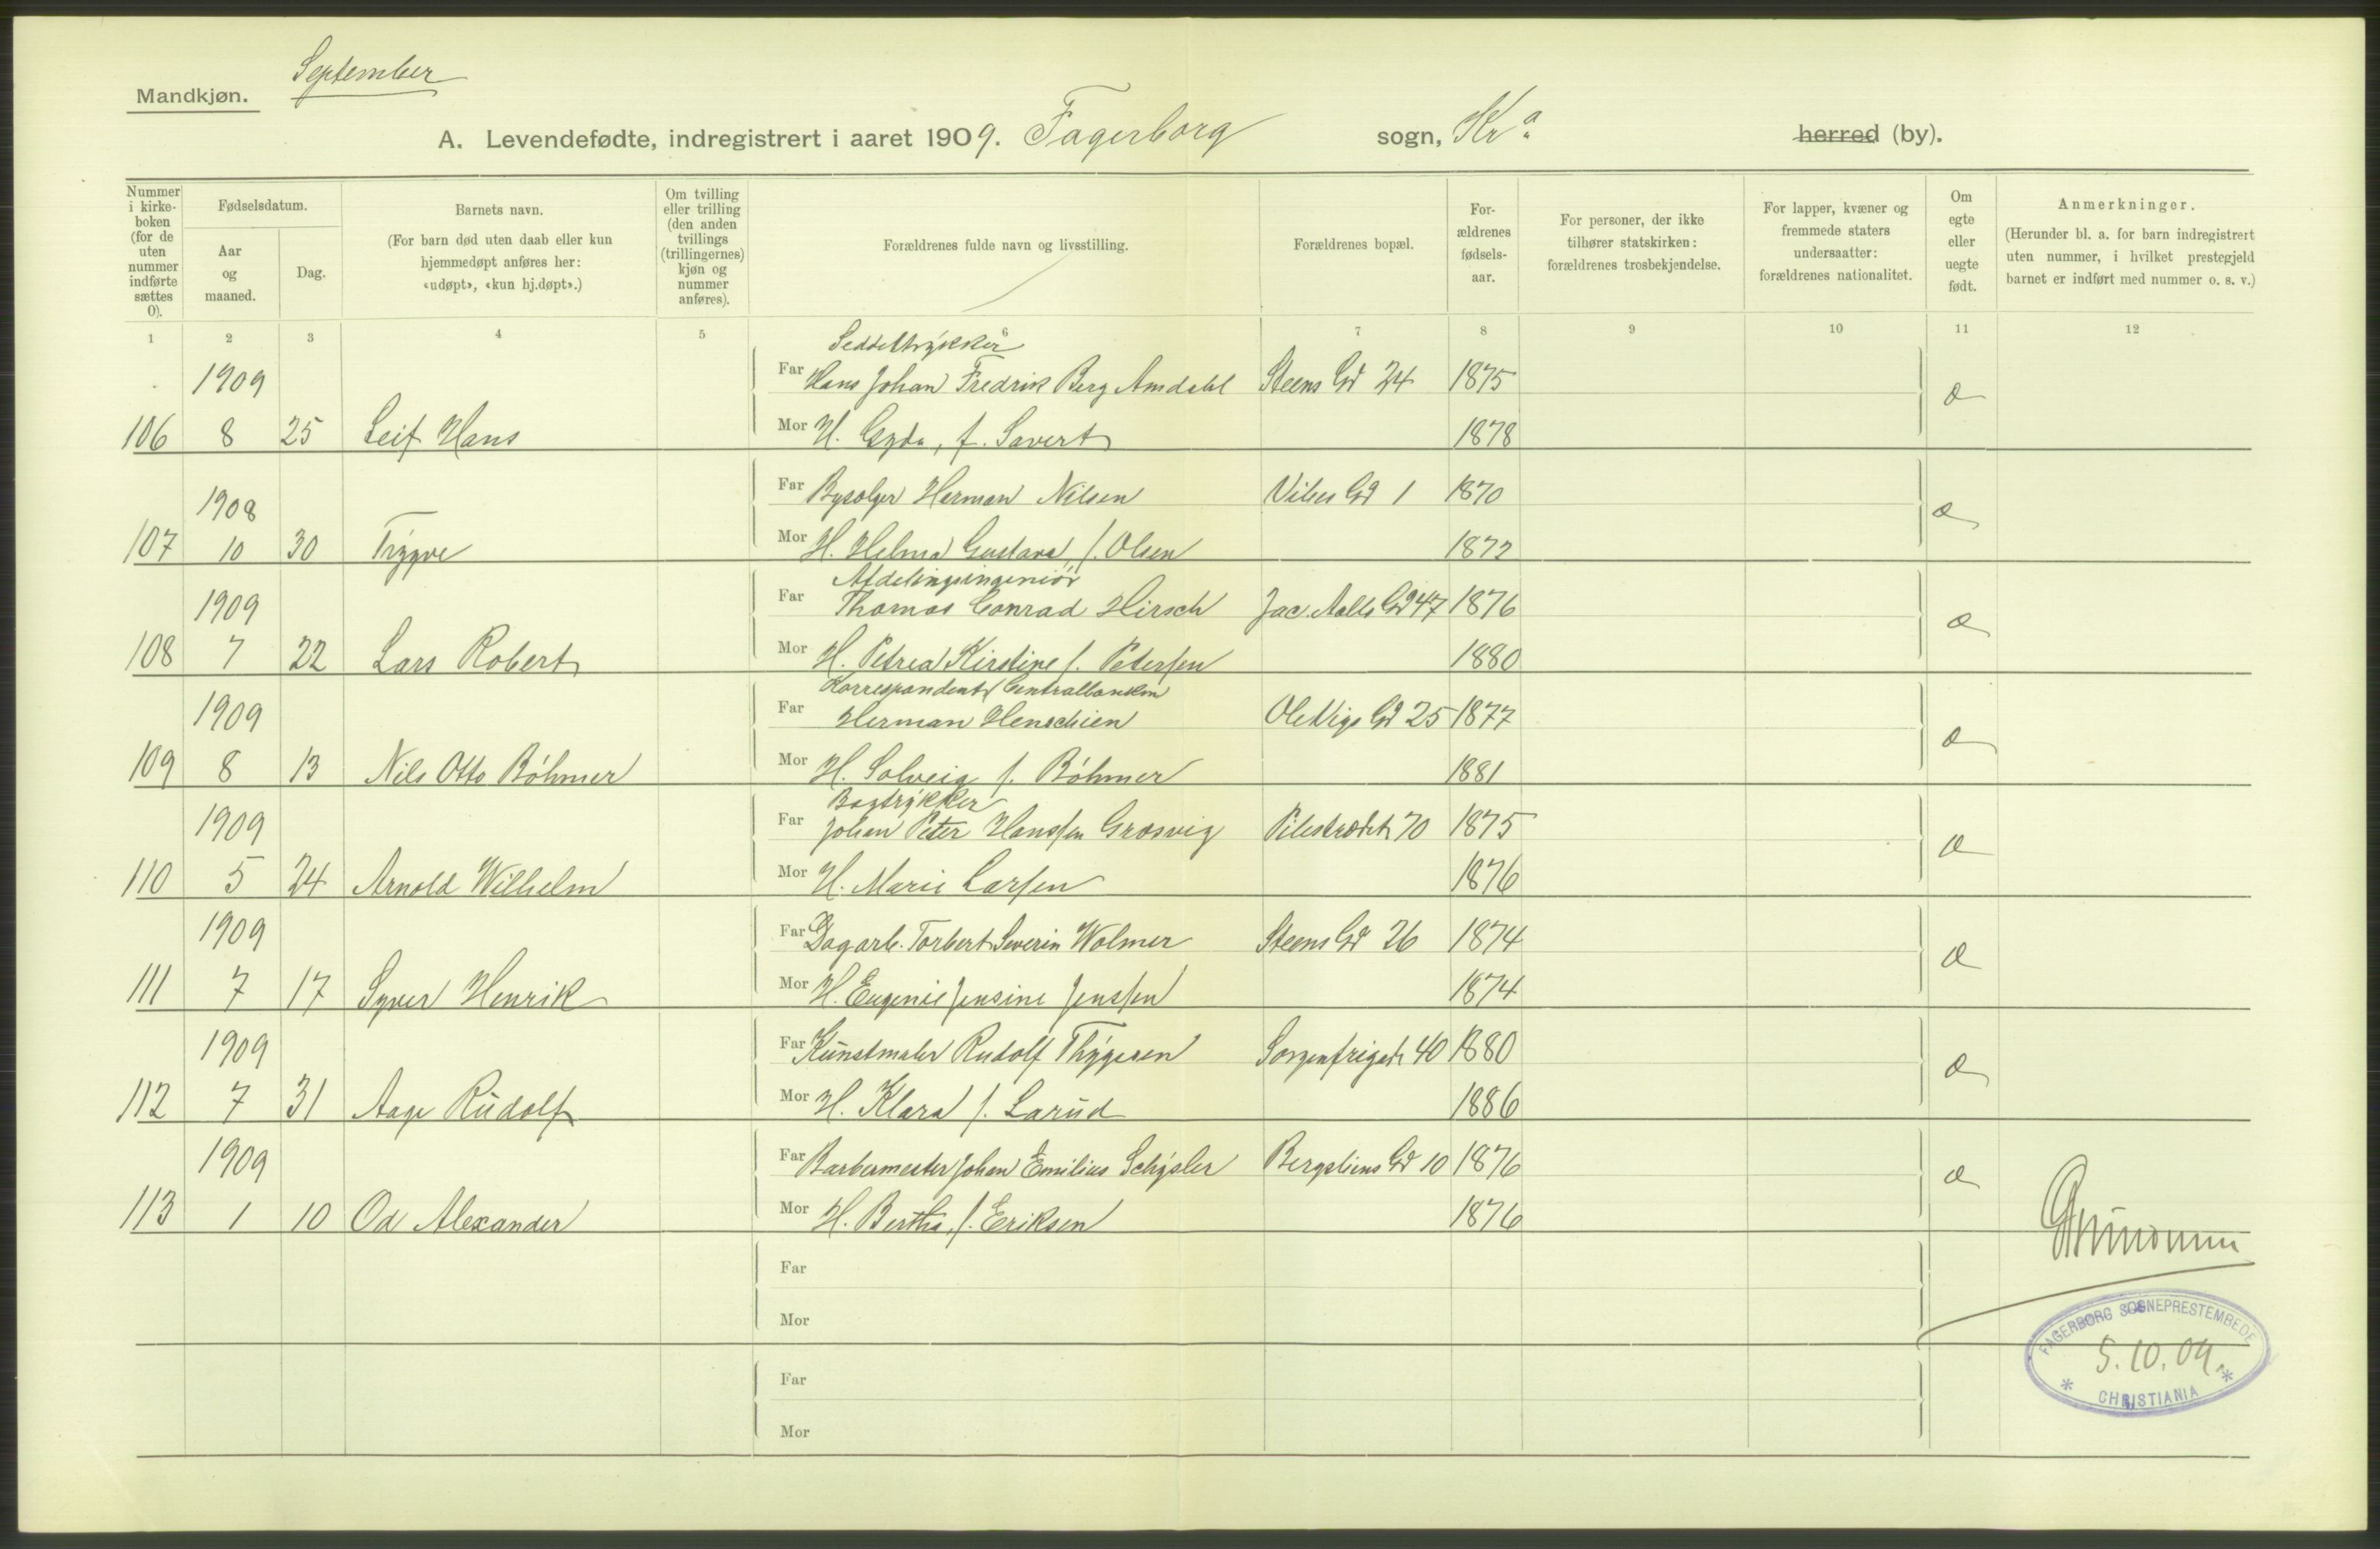 September
Mandkjøn.
A. Levendefødte, indregistrert i aaret 1909. Fagerborg sogn, Kra herred (by).
Nummer i kirke-boken (for de uten nummer indførte sættes 0).
Fødselsdatum.
Aar og maaned.
Dag.
Barnets navn.
(For barn død uten daab eller kun hjemmedøpt anføres her: «udøpt», «kun hj.døpt».)
Om tvilling eller trilling (den anden tvillings (trillingernes) kjøn og nummer anføres).
Forældrenes fulde navn og livsstilling.
Forældrenes bopæl.
For-ældrenes fødsels-aar.
For personer, der ikke tilhører statskirken: forældrenes trosbekjendelse.
For lapper, kvæner og fremmede staters undersaatter: forældrenes nationalitet.
Om egte eller uegte født.
Anmerkninger.
(Herunder bl. a. for barn indregistrert uten nummer, i hvilket prestegjeld barnet er indført med nummer o. s. v.)
1 2 3 4 5 6 7 8 9 10 11 12
Seddeltrykker
1909 Far Hans Johan Fredrik Berg Amdahl Steens Gd 24 1875
106 8 25 Leif Hans Mor H. Gyda, f. Savert 1878
1908 Far Herman Nilsen Vibes Gd 1 1870
107 10 30 Trygve Mor H. Helma Gustava f. Olsen 1872
Afdelingsingeniør
1909 Far Thomas Conrad Hirsch Jac. Aalls Gd 47 1876
108 7 22 Lars Robert Mor H. Petrea Kirstine f. Petersen 1880
Korrespondent Centralbanken
1909 Far Herman Henschien Ole Vigs Gd 25 1877
109 8 13 Nils Otto Böhmer Mor H. Solveig f. Böhmer 1881
Bogtrykker
1909 Far Johan Peter Hanssen Grosvig Pilestrædet 70 1875
110 5 24 Arnold Wilhelm Mor H. Marie Larsen 1876
1909 Far Dagarb. Torbert Severin Wolmer Steens Gd 26 1874
111 7 17 Syver Henrik Mor H. Eugenie Jensine Jenssen 1874
1909 Far Kunstmaler Rudolf Thygesen Sorgenfrigdt 40 1880
112 7 31 Aage Rudolf Mor H. Klara f. Larud 1886
1909 Far Barbermester Johan Emilius Schysler Bergsliens Gd 10 1876
113 1 10 Od Alexander Mor H. Bertha, f. Eriksen 1876
Far
Mor
Far
Mor
FAGERBORG SOGNEPRESTEMBEDE
5.10.09.
* CHRISTIANIA *